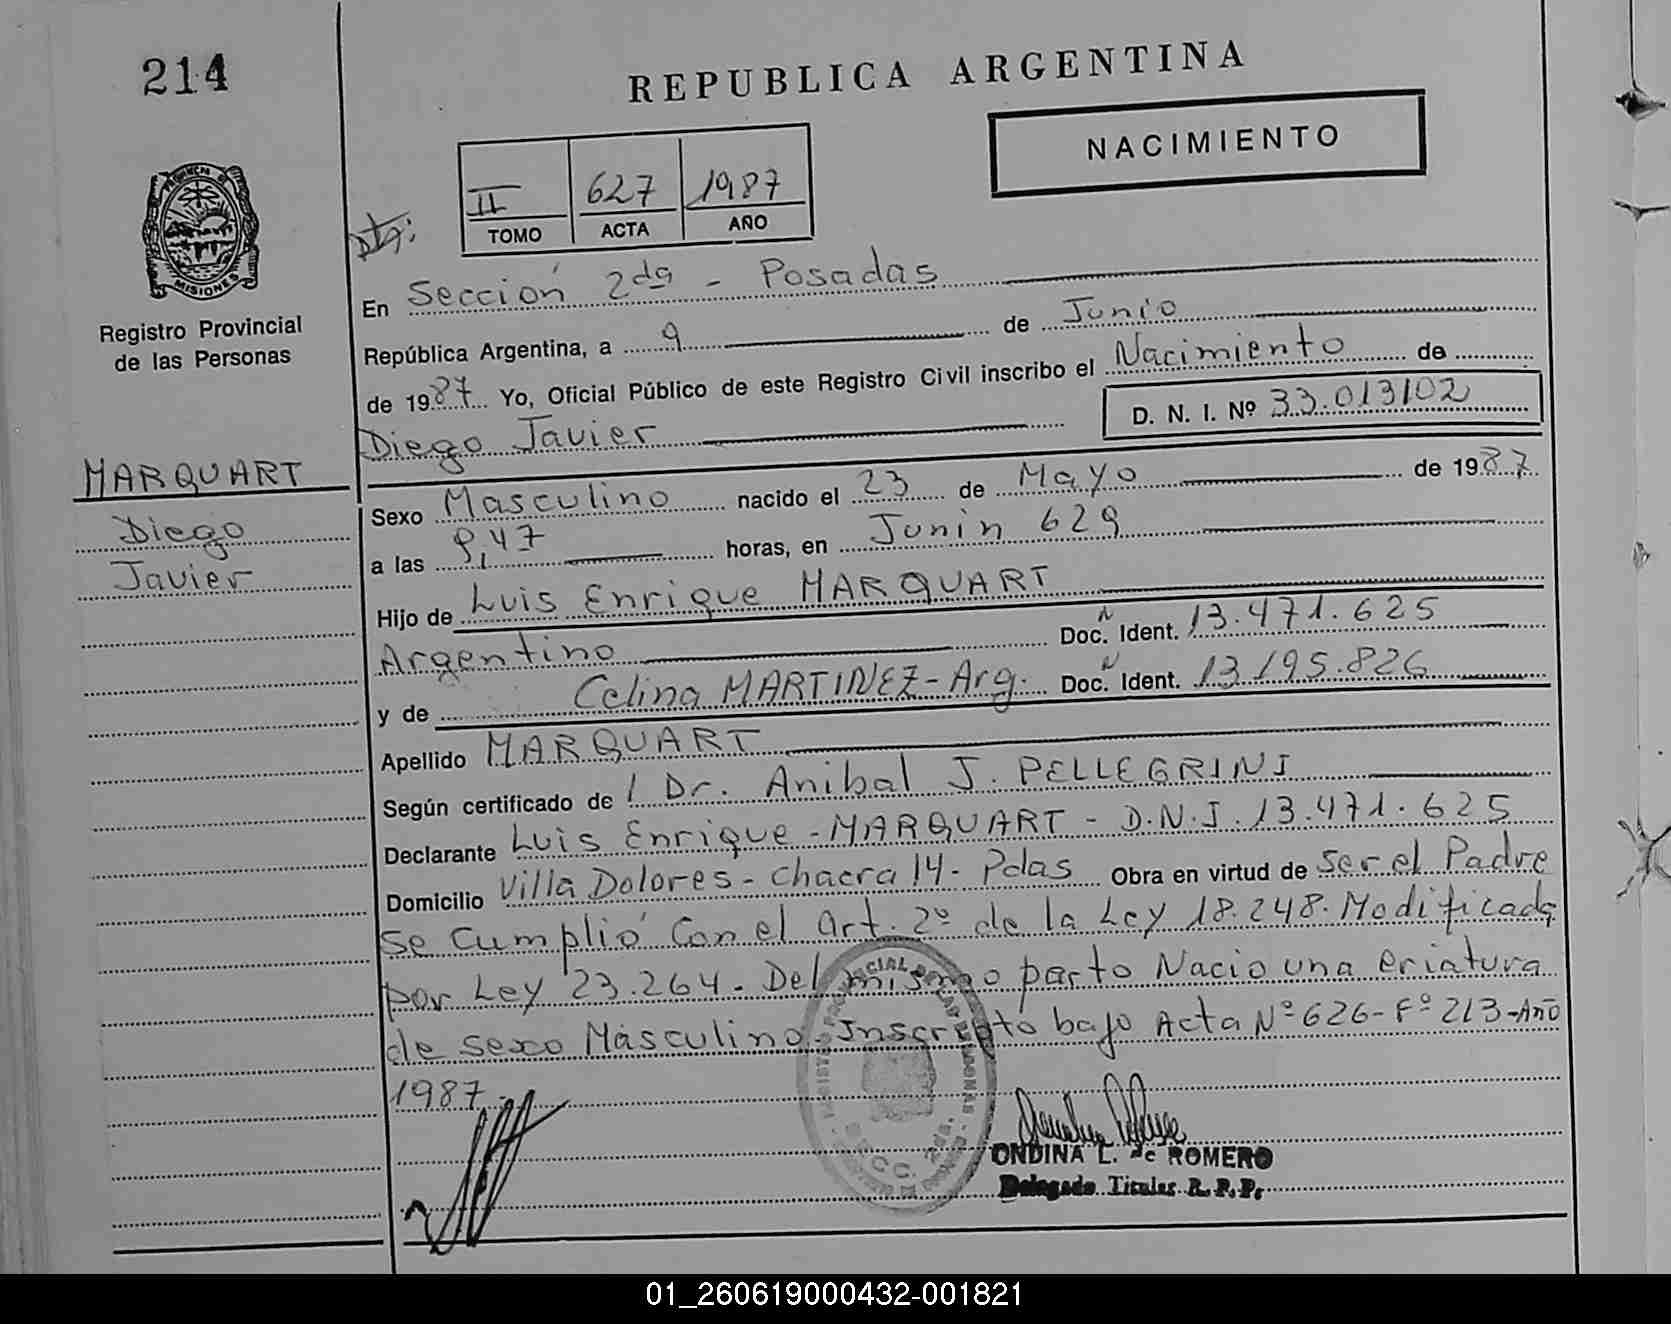 214
REPUBLICA ARGENTINA
NACIMIENTO
II 627 1987
TOMO ACTA AÑO
PROVINCIA DE
MISIONES
Registro Provincial
de las Personas
En Sección 2da - Posadas
República Argentina, a 9 de Junio
de 1987 Yo, Oficial Público de este Registro Civil inscribo el Nacimiento de
Diego Javier D. N. I. Nº 33.013102
MARQUART
Diego
Javier
Sexo Masculino nacido el 23 de Mayo de 1987
a las 9,47 horas, en Junin 629
Hijo de Luis Enrique MARQUART
Argentino Doc. Ident. N 13.471.625
y de Celina MARTINEZ - Arg. Doc. Ident. N 13195.826
Apellido MARQUART
Según certificado de / Dr. Anibal J. PELLEGRINI
Declarante Luis Enrique - MARQUART - D.N.I. 13.471.625
Domicilio Villa Dolores - chacra 14 - Pdas Obra en virtud de Ser el Padre
Se Cumplió Con el Art. 2º de la Ley 18.248. Modificada
por Ley 23.264. Del mismo parto Nacio una criatura
de sexo Masculino. Inscripto bajo Acta Nº 626 - Fº 213 - Año
1987
SECC. 2da.
ONDINA L. de ROMERO
Delegado Titular R. P. P.
01_260619000432-001821